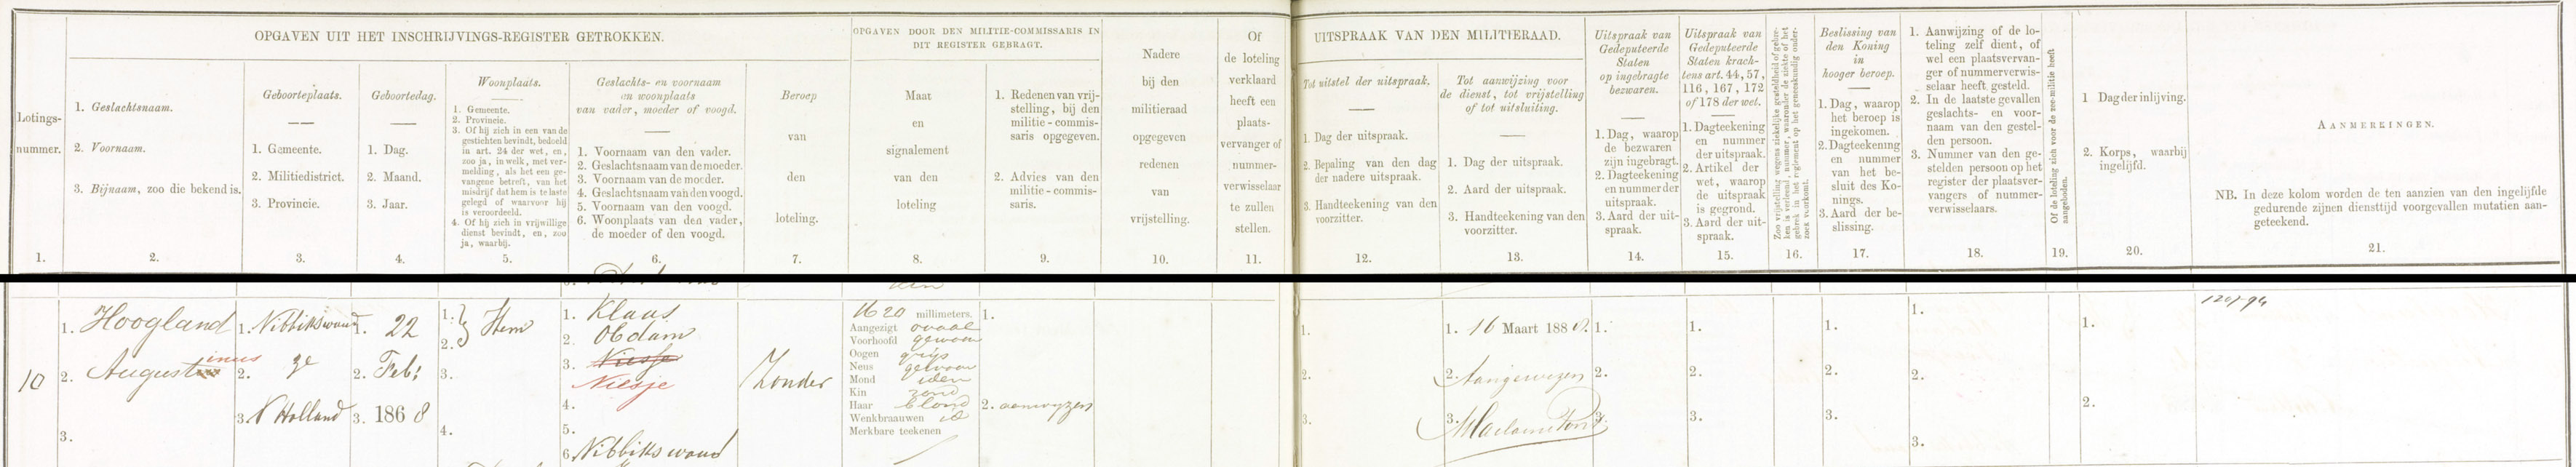 OPGAVEN UIT HET INSCHRIJVINGS-REGISTER GETROKKEN.
OPGAVEN DOOR DEN MILITIE-COMMISSARIS IN
DIT REGISTER GEBRAGT.
Lotings-
nummer.
1.
1. Geslachtsnaam.
2. Voornaam.
3. Bijnaam, zoo die bekend is.
2.
Geboorteplaats.
1. Gemeente.
2. Militiedistrict.
3. Provincie.
3.
Geboortedag.
1. Dag.
2. Maand.
3. Jaar.
4.
Woonplaats.
1. Gemeente.
2. Provincie.
3. Of hij zich in een van de
gestichten bevindt, bedoeld
in art. 24 der wet, en,
zoo ja, in welk, met ver-
melding, als het een ge-
vangene betreft, van het
misdrijf dat hem is te laste
gelegd of waarvoor hij
is veroordeeld.
4. Of hij zich in vrijwillige
dienst bevindt, en, zoo
ja, waarbij.
5.
Geslachts- en voornaam
en woonplaats
van vader, moeder of voogd.
1. Voornaam van den vader.
2. Geslachtsnaam van de moeder.
3. Voornaam van de moeder.
4. Geslachtsnaam van den voogd.
5. Voornaam van den voogd.
6. Woonplaats van den vader,
de moeder of den voogd.
6.
Beroep
van
den
loteling.
7.
Maat
en
signalement
van den
loteling
8.
1. Redenen van vrij-
stelling, bij den
militie-commis-
saris opgegeven.
2. Advies van den
militie-commis-
saris.
9.
Nadere
bij den
militieraad
opgegeven
redenen
van
vrijstelling.
10.
Of
de loteling
verklaard
heeft een
plaats-
vervanger of
nummer-
verwisselaar
te zullen
stellen.
11.
UITSPRAAK VAN DEN MILITIERAAD.
Tot uitstel der uitspraak.
1. Dag der uitspraak.
2. Bepaling van den dag
der nadere uitspraak.
3. Handteekening van den
voorzitter.
12.
Tot aanwijzing voor
de dienst, tot vrijstelling
of tot uitsluiting.
1. Dag der uitspraak.
2. Aard der uitspraak.
3. Handteekening van den
voorzitter.
13.
Uitspraak van
Gedeputeerde
Staten
op ingebragte
bezwaren.
1. Dag, waarop
de bezwaren
zijn ingebragt.
2. Dagteekening
en nummer der
uitspraak.
3. Aard der uit-
spraak.
14.
Uitspraak van
Gedeputeerde
Staten krach-
tens art. 44, 57,
116, 167, 172
of 178 der wet.
1. Dagteekening
en nummer
der uitspraak.
2. Artikel der
wet, waarop
de uitspraak
is gegrond.
3. Aard der uit-
spraak.
15.
Zoo vrijstelling wegens ziekelijke gesteldheid of gebre-
ken is verleend, nummer, waaronder de ziekte of het
gebrek in het reglement op het geneeskundig onder-
zoek voorkomt.
16.
Beslissing van
den Koning
in
hooger beroep.
1. Dag, waarop
het beroep is
ingekomen.
2. Dagteekening
en nummer
van het be-
sluit des Ko-
nings.
3. Aard der be-
slissing.
17.
1. Aanwijzing of de lo-
teling zelf dient, of
wel een plaatsvervan-
ger of nummerverwis-
selaar heeft gesteld.
2. In de laatste gevallen
geslachts- en voor-
naam van den gestel-
den persoon.
3. Nummer van den ge-
stelden persoon op het
register der plaatsver-
vangers of nummer-
verwisselaars.
18.
Of de loteling zich voor de zee-militie heeft
aangeboden.
19.
1 Dag der inlijving.
2. Korps, waarbij
ingelijfd.
20.
AANMERKINGEN.
NB. In deze kolom worden de ten aanzien van den ingelijfde
gedurende zijnen diensttijd voorgevallen mutatien aan-
geteekend.
21.
10
1. Hoogland
2. Augustinus
3.
1. Nibbikswoud
2. ze
3. N Holland
1. 22
2. Feb:
3. 1868
1. } Hem
2.
3.
4.
1. Klaas
2. Obdam
3. Niesje
Niesje
4.
5.
6. Nibbikswoud
Zonder
1620 millimeters.
Aangezigt ovaal
Voorhoofd gewoon
Oogen grijs
Neus gewoon
Mond idem
Kin rond
Haar blond
Wenkbraauwen id
Merkbare teekenen
1.
2. aanwyzen
1.
2.
3.
1. 16 Maart 1888.
2. Aangewezen
3.
1.
2.
3.
1.
2.
3.
1.
2.
3.
1.
2.
3.
1.
2.
1207-94